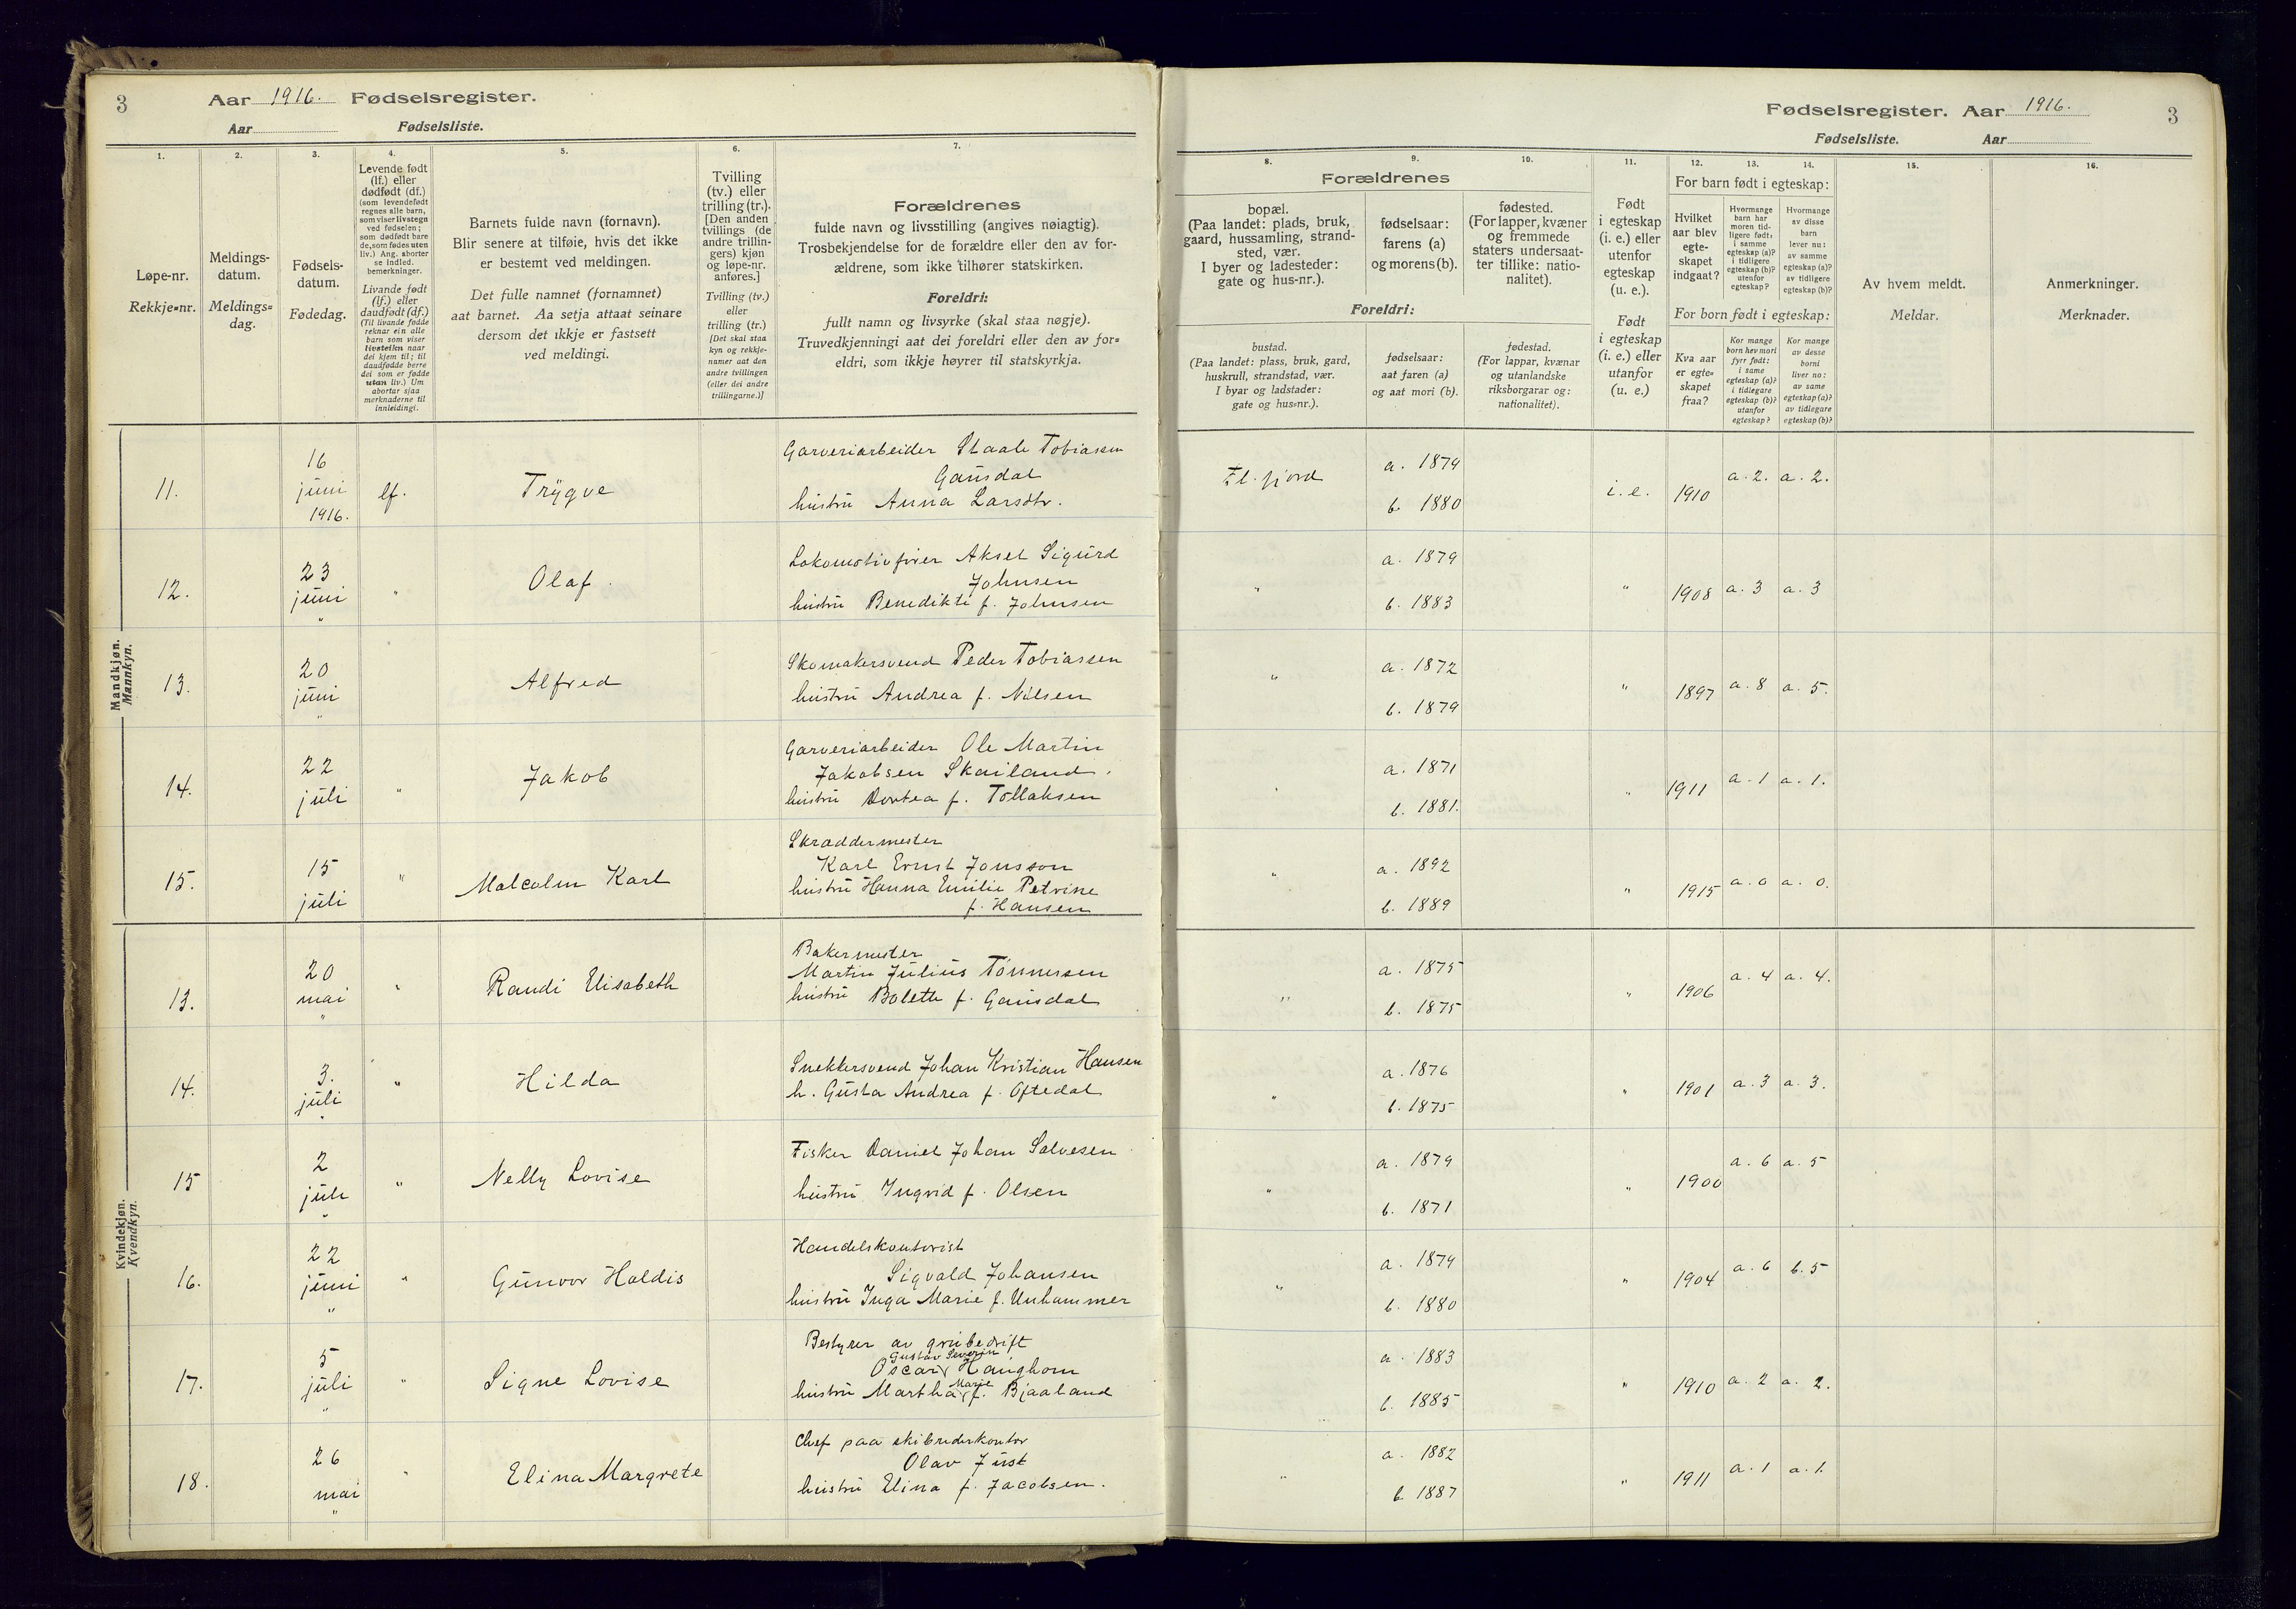 3
Aar 1916. Fødselsregister.
Aar Fødselsliste.
1.
2.
3.
4.
5.
6.
7.
Løpe-nr.
Rekkje-nr.
Meldings-
datum.
Meldings-
dag.
Fødsels-
datum.
Fødedag.
Levende født
(lf.) eller
dødfødt (df.)
(som levendefødt
regnes alle barn,
som viser livstegn
ved fødselen;
som dødfødt bare
de, som fødes uten
liv.) Ang. aborter
se indled.
bemerkninger.
Livande født
(lf.) eller
daudfødt (df.)
(Til livande fødde
reknar ein alle
barn som viser
livsteikn naar
dei kjem til; til
daudfødde berre
dei som er fødde
utan liv.) Um
abortar sjaa
merknaderne til
innleidingi.
Barnets fulde navn (fornavn).
Blir senere at tilføie, hvis det ikke
er bestemt ved meldingen.
Det fulle namnet (fornamnet)
aat barnet. Aa setja attaat seinare
dersom det ikkje er fastsett
ved meldingi.
Tvilling
(tv.) eller
trilling (tr.).
[Den anden
tvillings (de
andre trillin-
gers) kjøn
og løpe-nr.
anføres.]
Tvilling (tv.)
eller
trilling (tr.)
[Det skal staa
kyn og rekkje-
namer aat den
andre tvillingen
(eller dei andre
trillingarne.)]
Forældrenes
fulde navn og livsstilling (angives nøiagtig).
Trosbekjendelse for de forældre eller den av for-
ældrene, som ikke tilhører statskirken.
Foreldri:
fullt namn og livsyrke (skal staa nøgje).
Truvedkjenningi aat dei foreldri eller den av for-
eldri, som ikkje høyrer til statskyrkja.
Fødselsregister. Aar 1916.
3
Fødselsliste. Aar
8.
9.
10.
11.
12.
13.
14.
15.
16.
Forældrenes
bopæl.
(Paa landet: plads, bruk,
gaard, hussamling, strand-
sted, vær.
I byer og ladesteder:
gate og hus-nr.).
fødselsaar:
farens (a)
og morens (b).
fødested.
(For lapper, kvæner
og fremmede
staters undersaat-
ter tillike: natio-
nalitet).
Foreldri:
bustad.
(Paa landet: plass, bruk, gard,
huskrull, strandstad, vær.
I byar og ladstader:
gate og hus-nr.).
fødselsaar:
aat faren (a)
og aat mori (b).
fødestad.
(For lappar, kvænar
og utanlandske
riksborgarar og:
nationalitet).
Født
i egteskap
(i. e.) eller
utenfor
egteskap
(u. e.).
Født
i egteskap
(i. e.) eller
utanfor
(u. e.)
For barn født i egteskap:
Hvilket
aar blev
egte-
skapet
indgaat?
Hvormange
barn har
moren tid-
ligere født:
i samme
egteskap (a)?
i tidligere
egteskap (b)?
utenfor
egteskap?
Hvormange
av disse
barn
lever nu:
av samme
egteskap (a)?
av tidligere
egteskap (b)?
For born født i egteskap:
Kva aar
er egte-
skapet
fraa?
Kor mange
born hev mori
fyrr født:
i same
egteskap (a)?
i tidlegare
egteskap (b)?
utanfor
egteskap?
Kor mange
av desse
borni
liver no:
av same
egteskap (a)?
av tidlegare
egteskap (b)?
Av hvem meldt.
Meldar.
Anmerkninger.
Merknader.
Mandkjøn.
Mannkyn.
11. 16 juni 1916. lf. Trygve
Garveriarbeider Staale Tobiassen
Gausdal
hustru Anna Larsdtr.
Fl. fjord a. 1879 b. 1880 i. e. 1910 a. 2. a. 2.
12. 23 juni " " Olaf.
Lokomotivfører Aksel Sigurd
Johnsen
hustru Benedikte f. Johnsen
" a. 1879 b. 1883 " 1908 a. 3 a. 3
13. 20 juni " Alfred
Skomakersvend Peder Tobiassen
hustru Andrea f. Nilsen
" a. 1872 b. 1879 " 1897 a. 8 a. 5.
14. 22 juli " Jakob
Garveriarbeider Ole Martin
Jakobsen Skailand.
hustru Dortea f. Tollaksen
" a. 1871 b. 1881. " 1911 a. 1 a. 1.
15. 15 juli " Malcolm Karl
Skræddermester
Karl Ernst Jonsson
hustru Hanna Emilie Petrine
f. Hansen
" a. 1892 b. 1889 " 1915 a. 0 a. 0.
Kvindekjøn.
Kvendkyn.
13. 20 mai " " Randi Elisabeth
Bakermester
Martin Julius Tønnessen
hustru Bolette f. Gausdal
" a. 1875 b. 1875 " 1906 a. 4 a. 4.
14. 3. juli " " Hilda
Snekkersvend Johan Kristian Hansen
h. Gusta Andrea f. Oftedal
" a. 1876 b. 1875 " 1901 a. 3 a. 3.
15 2 juli " " Nelly Lovise
Fisker Daniel Johan Salvesen
hustru Ingrid f. Olsen
" a. 1879 b. 1871 " 1900 a. 6 a. 5
16. 22 juni " " Gunvor Haldis
Handelskontorist
Sigvald Johansen
hustru Inga Marie f. Unhammer
" a. 1879 b. 1880 " 1904 a. 6 b. 5
17. 5 juli " " Signe Lovise
Bestyrer av grubedrift
Gustav Severin
Oscar Haughom
Marie
hustru Martha f. Bjaaland
a. 1883 b. 1885 " 1910 a. 2 a. 2.
18. 26 mai " " Elina Margrete
Chef paa skibrederkontor
Olav Just
hustru Elina f. Jacobsen.
" a. 1882 b. 1887 " 1911 a. 1 a. 1.